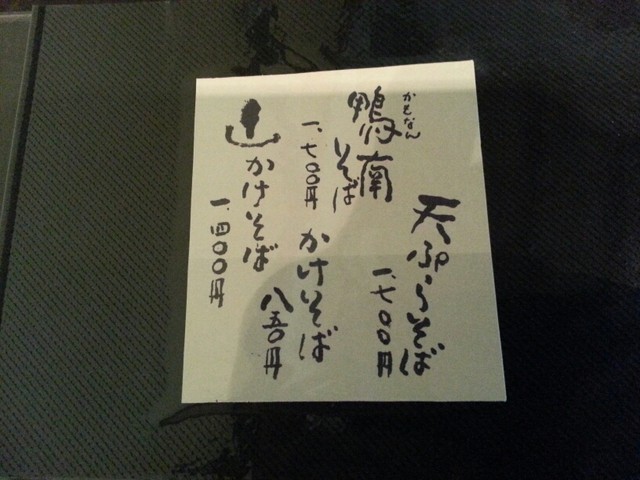 天ぷらそば
一、七〇〇円
かもなん
鴨南
そば
一、七〇〇円
かけそば
八五〇円
かけそば
一、四〇〇円